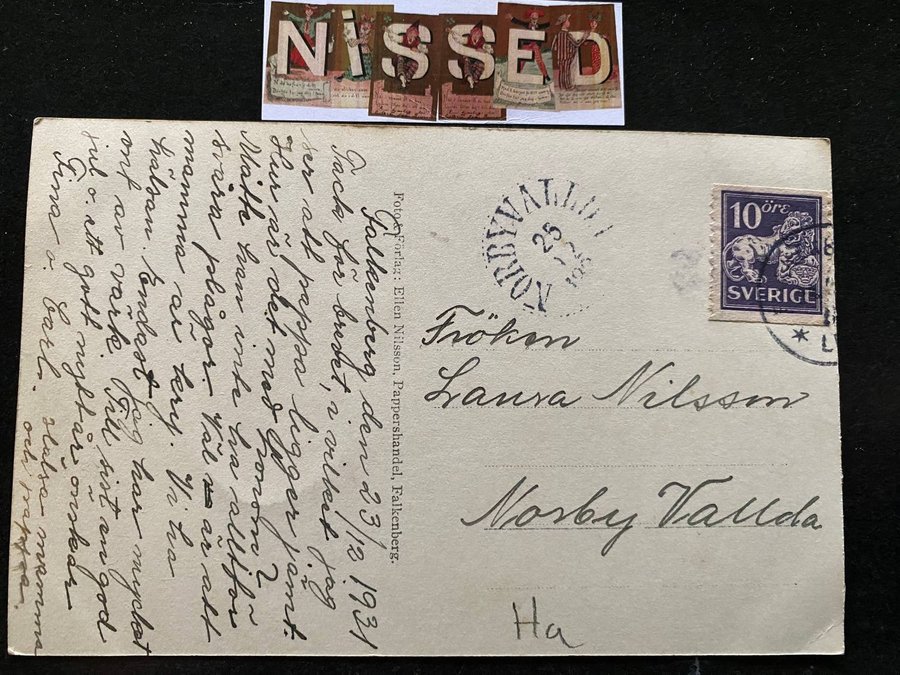 NiSSED
Falkenberg den 23/12 1931
Tack för bredet, i vilket jag
ser att pappa ligger jämt.
Hur är det med honom?
Måtte han inte ha alltför
svåra plågor. Väl är att
mamma är kry. Vi ha
hälsan. Endast jag har mycket
ont av värk. Till sist en god
jul o. ett gott nyttår önskar
Carl. Hälsa mamma
och pappa.
Foto & Förlag: Ellen Nilsson, Pappershandel, Falkenberg.
NORBYVALLDA
25
10 öre
SVERIGE
Fröken
Laura Nilsson
Norby Vallda
Ha